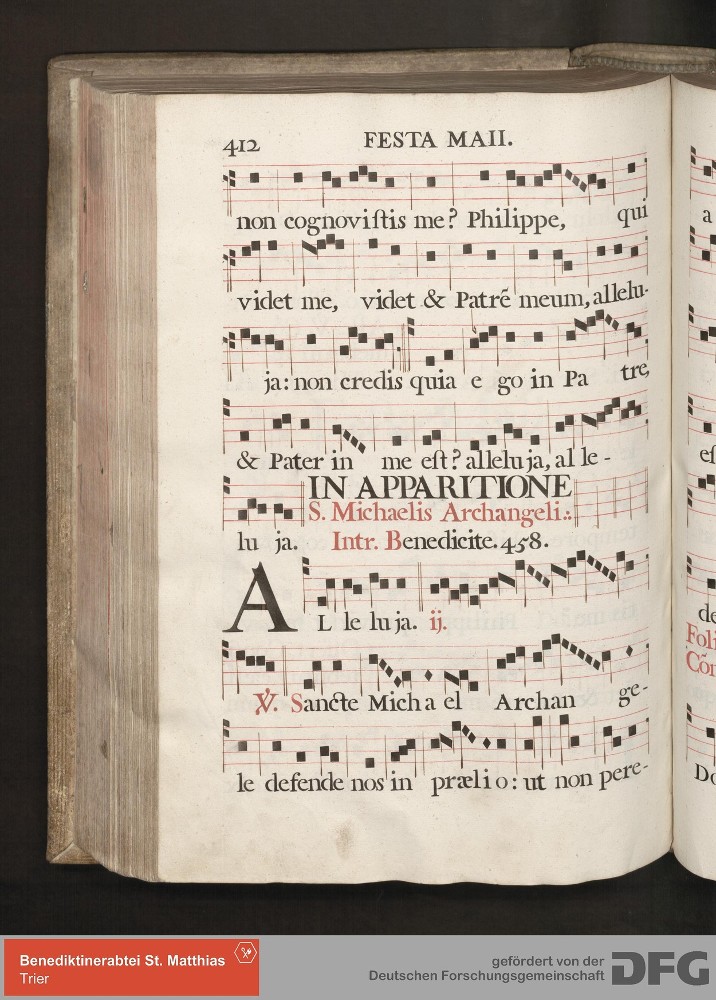 412 FESTA MAII.
non cognoviſtis me? Philippe, qui
videt me, videt & Patrē meum, allelu-
ja: non credis quia e go in Pa tre,
& Pater in me eſt? alleluja, al le -
IN APPARITIONE
S. Michaelis Archangeli.:.
lu ja. Intr. Benedicite. 458.
A L le lu ja. ij.
℣. Sancte Mich a el Archan ge-
le defende nos in prælio: ut non pere-
a
eſ
de
Foli
Cōn
Do
Benediktinerabtei St. Matthias
Trier
gefördert von der
Deutschen Forschungsgemeinschaft
DFG